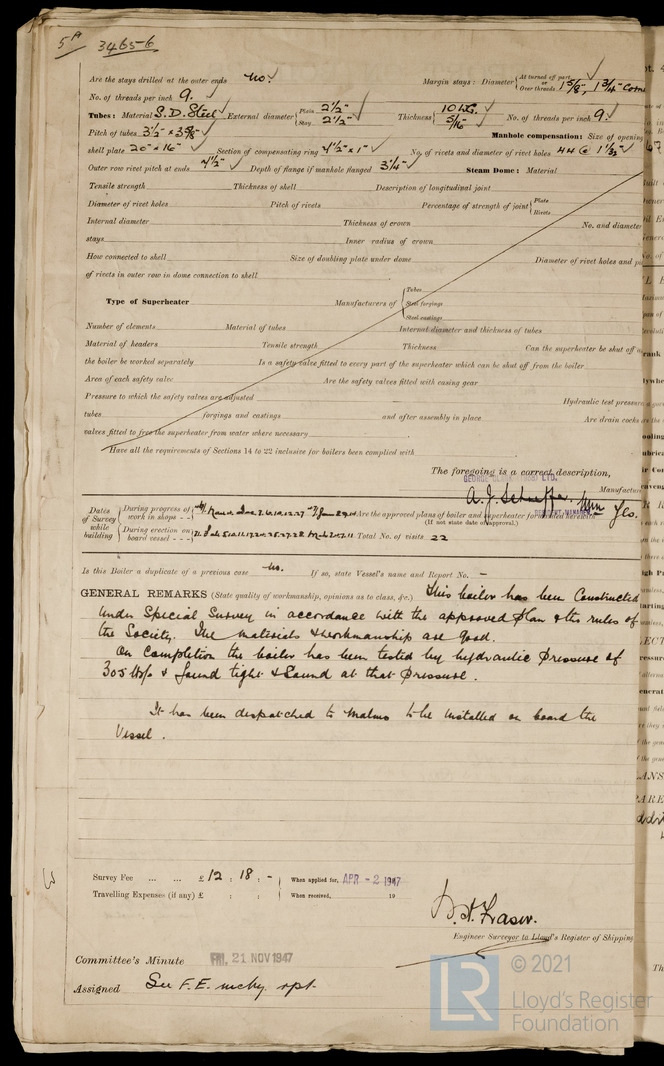 5A 34656
Are the stays drilled at the outer ends no. Margin stays: Diameter { At turned off part, or Over threads 1 5/8", 1 3/4"
No. of threads per inch 9.
Tubes: Material S.D. Steel External diameter { Plain 2 1/2" Stay 2 1/2" Thickness { 10 LSG. 5/16" No. of threads per inch 9.
Pitch of tubes 3 1/2" x 3 5/8" Manhole compensation: Size of opening
shell plate 20" x 16" Section of compensating ring 4 1/2" x 1" No. of rivets and diameter of rivet holes 44 @ 1 1/32"
Outer row rivet pitch at ends 4 1/2" Depth of flange if manhole flanged 3 1/4" Steam Dome: Material
Tensile strength Thickness of shell Description of longitudinal joint
Diameter of rivet holes Pitch of rivets Percentage of strength of joint { Plate Rivets
Internal diameter Thickness of crown No. and diameter
stays Inner radius of crown
How connected to shell Size of doubling plate under dome Diameter of rivet holes and
of rivets in outer row in dome connection to shell
Type of Superheater Manufacturers of { Tubes Steel forgings Steel castings
Number of elements Material of tubes Internal diameter and thickness of tubes
Material of headers Tensile strength Thickness Can the superheater be shut off
the boiler be worked separately Is a safety valve fitted to every part of the superheater which can be shut off from the boiler
Area of each safety valve Are the safety valves fitted with easing gear
Pressure to which the safety valves are adjusted Hydraulic test pressure
tubes forgings and castings and after assembly in place Are drain cocks
valves fitted to free the superheater from water where necessary
Have all the requirements of Sections 14 to 22 inclusive for boilers been complied with
The foregoing is a correct description,
LTD.
Manufacturer
Dates of Survey while building { During progress of work in shops - - Are the approved plans of boiler and superheater forwarded herewith Yes.
(If not state date of approval.)
During erection on board vessel - - - Total No. of visits 22
Is this Boiler a duplicate of a previous case No. If so, state Vessel's name and Report No. -
GENERAL REMARKS (State quality of workmanship, opinions as to class, &c.) This boiler has been Constructed
under Special Survey in accordance with the approved plan & the rules of
the Society. The materials & workmanship are good.
On Completion the boiler has been tested by hydraulic Pressure of
305 & found tight & Sound at that Pressure.
It has been dispatched to Malmo to be installed on board the
Vessel.
Survey Fee ... ... £ 12 : 18 : - When applied for, APR - 2 1947
Travelling Expenses (if any) £ : : When received, 19
Fraser.
Engineer Surveyor to Lloyd's Register of Shipping
Committee's Minute FRI, 21 NOV 1947
Assigned See F.E. mchy. rpt.
LR © 2021
Lloyd's Register
Foundation